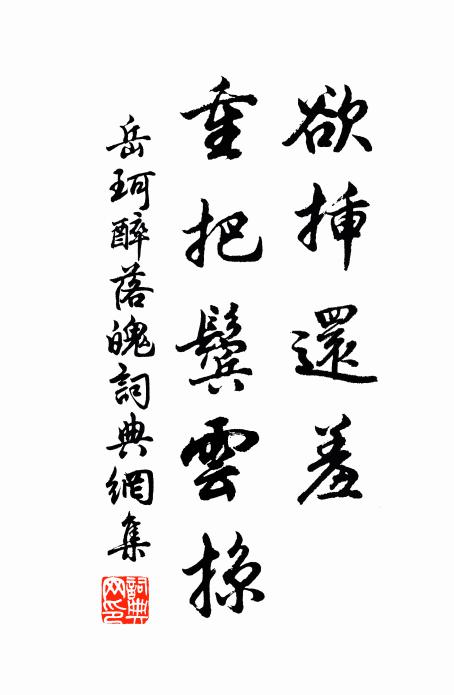 欲插還羞
重把鬓雲掠
岳珂醉落魄詞典網集
詞典
网印